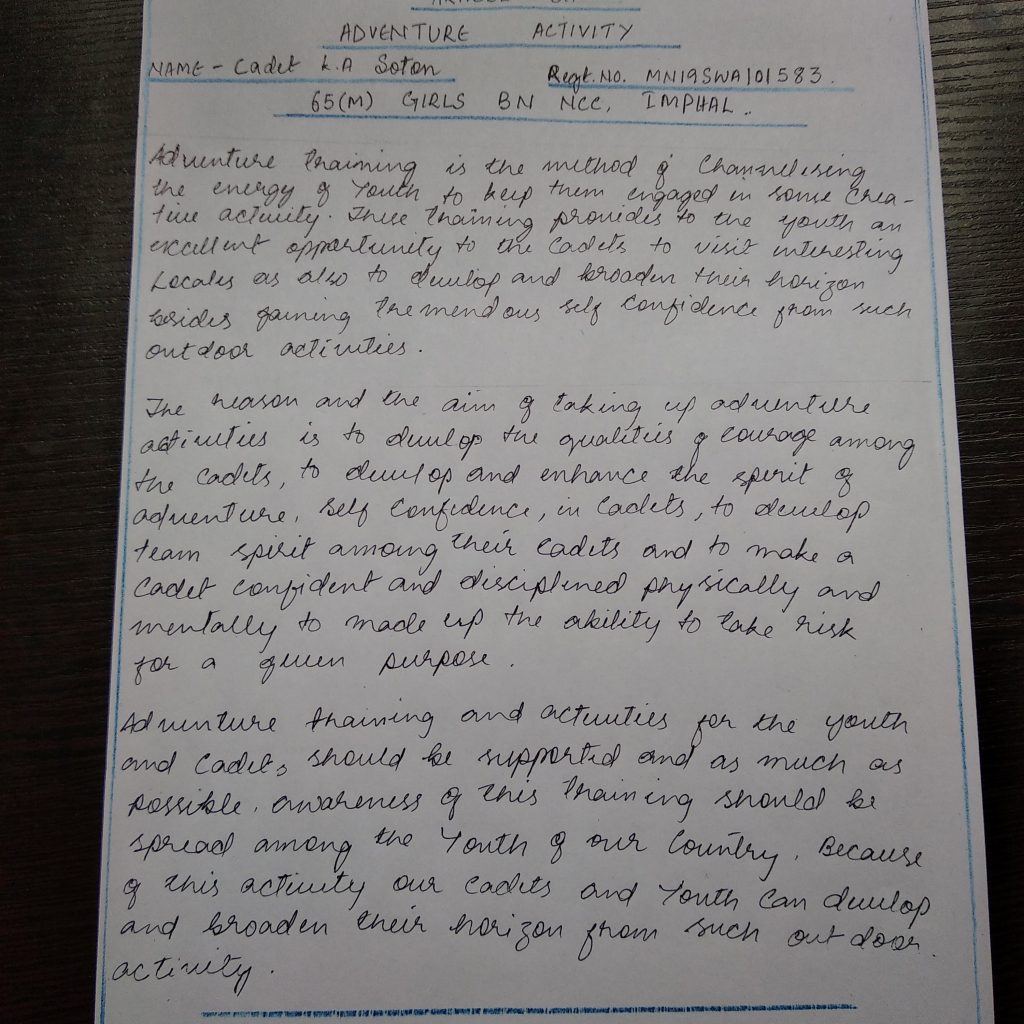 ARTICLE ON
ADVENTURE ACTIVITY
NAME - Cadet L.A Soton Regt.No. MN19SWA101583.
65(M) GIRLS BN NCC, IMPHAL.
Adventure training is the method of Channelising
the energy of Youth to keep them engaged in some crea-
tive activity. These training provides to the youth an
excellent opportunity to the cadets to visit interesting
Locales as also to develop and broaden their horizon
besides gaining tremendous self confidence from such
outdoor activities.
The reason and the aim of taking up adventure
activities is to develop the qualities of courage among
the cadets, to develop and enhance the spirit of
adventure, self confidence, in cadets, to develop
team spirit among their cadets and to make a
cadet confident and disciplined physically and
mentally to made up the ability to take risk
for a given purpose.
Adventure training and activities for the youth
and cadets should be supported and as much as
possible. awareness of this training should be
spread among the Youth of our Country. Because
of this activity our cadets and Youth can develop
and broaden their horizon from such out door
activity.